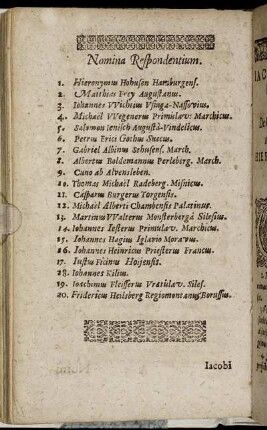 Nomina Respondentum.
1. Hieronymus Hobusen Hamburgens.
2. Matthias Frey Augustanus.
3. Iohannes VVilhelm Vsinga-Nassovius.
4. Michaël VVegenerus Primulav: Marchicus.
5. Salomon Ienisch Augustâ-Vindelicus.
6. Petrus Erici Gothus Suecus.
7. Gabriel Albinus Sehusens. March.
8. Albertus Boldemannus Perleberg. March.
9. Cuno ab Alvensleben.
10. Thomas Michaël Radeberg. Misnicus.
11. Casparus Burgerus Torgensis.
12. Michaël Alberti Chambensis Palatinus.
13. Martinus VValterus Monsterbergâ Silesius.
14. Iohannes Iesterus Primulav. Marchicus.
15. Iohannes Hagius Iglavio Moravus.
16. Iohannes Heinricus Priesterus Francus.
17. Iustus Ficinus Hojensis.
18. Iohannes Kilius.
19. Ioachimus Fleisserus Vratislav. Siles.
20. Fridericus Heilsberg Regiomontanus Borussus.
Iacobi